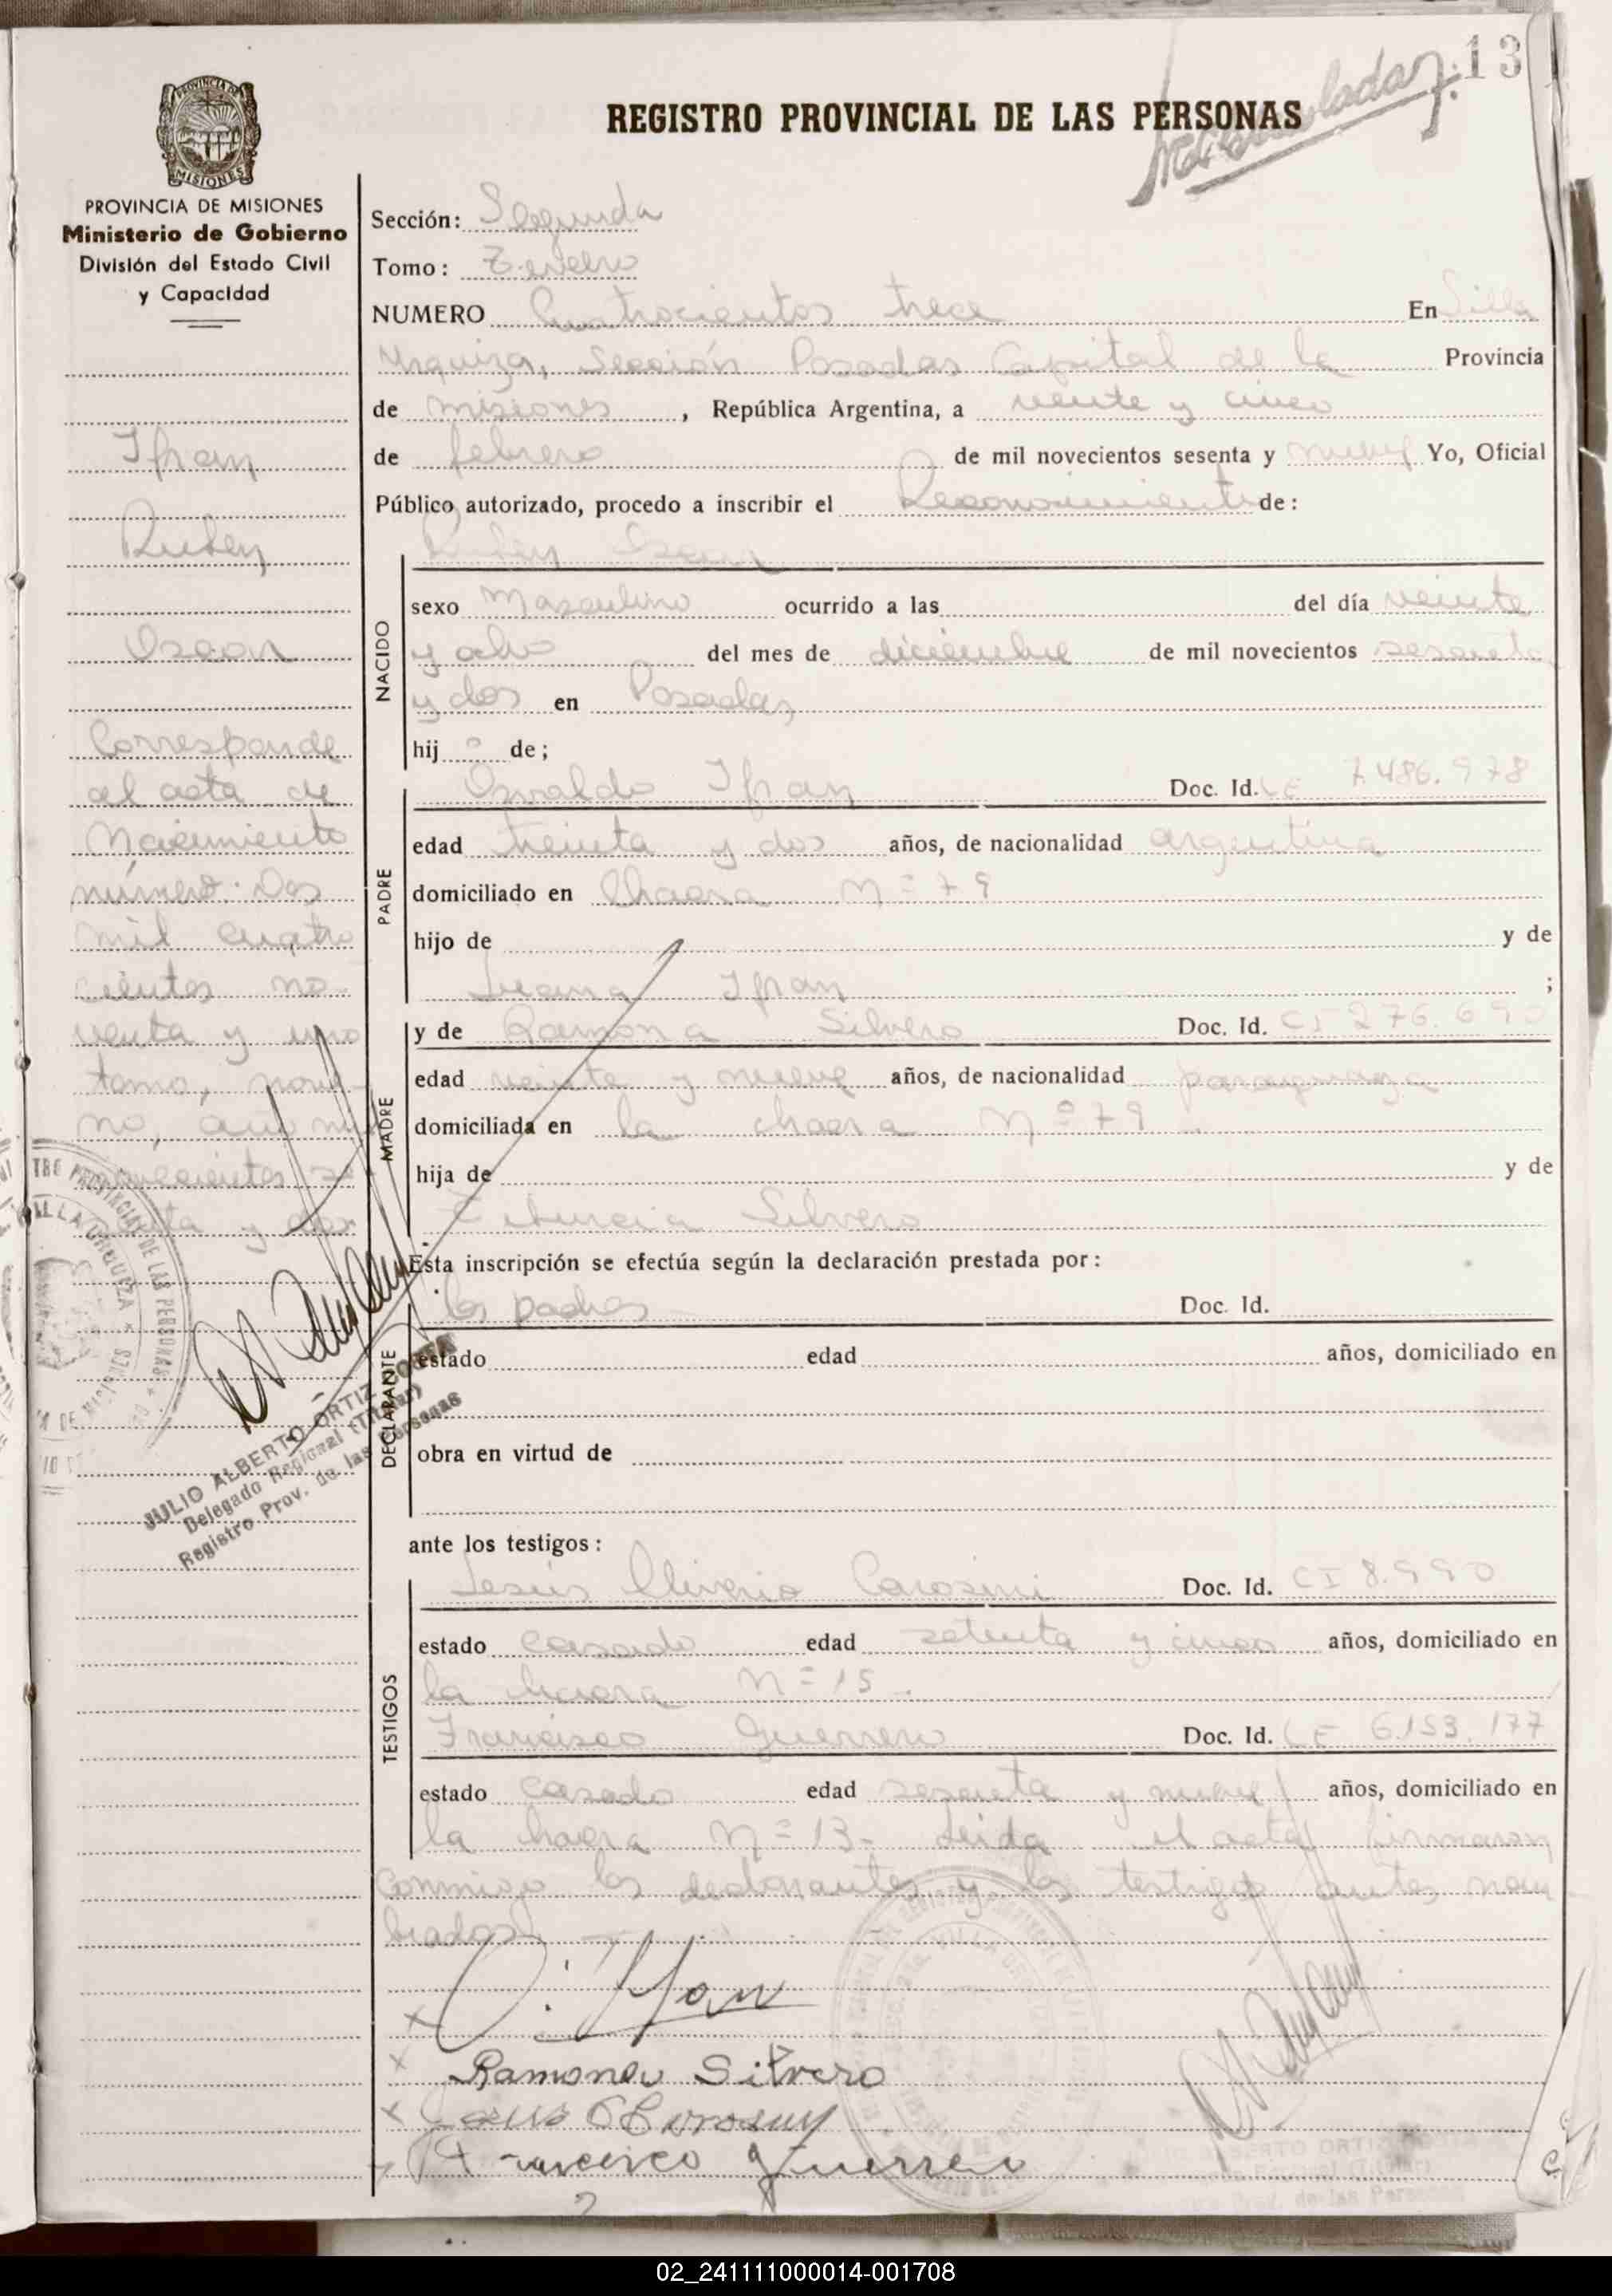 13
REGISTRO PROVINCIAL DE LAS PERSONAS
PROVINCIA DE MISIONES
Ministerio de Gobierno
División del Estado Civil
y Capacidad
Ifran
Ruben
Oscar
Corresponde
al acta de
Nacimiento
número: Dos
mil cuatro
cientos no-
venta y uno
tomo, nove-
no, año mil
novecientos se
senta y dos
JULIO ALBERTO ORTIZ
Delegado Regional (Titular)
Registro Prov. de las Personas
Sección: Segunda
Tomo: Tercero
NUMERO Cuatrocientos trece En Villa
Urquiza, Sección Posadas Capital de la Provincia
de misiones, República Argentina, a veinte y cinco
de febrero de mil novecientos sesenta y nueve Yo, Oficial
Público autorizado, procedo a inscribir el Reconocimiento de:
Ruben Oscar
NACIDO
sexo Masculino ocurrido a las del día veinte
y ocho del mes de diciembre de mil novecientos sesenta
y dos en Posadas
hij o de;
PADRE
Osvaldo Ifran Doc. Id. LE 7.486.978
edad treinta y dos años, de nacionalidad argentina
domiciliado en Chacra Nº 79
hijo de y de
Ifran ;
MADRE
y de Ramona Silvero Doc. Id. CI 276.690
edad veinte y nueve años, de nacionalidad paraguaya
domiciliada en la chacra Nº 79
hija de y de
Silvero
Esta inscripción se efectúa según la declaración prestada por:
DECLARANTE
los padres Doc. Id.
estado edad años, domiciliado en
obra en virtud de
ante los testigos:
TESTIGOS
Jesús Oliverio Carosini Doc. Id. CI 8.990
estado casado edad setenta y cinco años, domiciliado en
la chacra Nº 15.
Francisco Guerrero Doc. Id. LE 6.153.177
estado casado edad sesenta y nueve años, domiciliado en
la chacra Nº 13- Leida el acta firmaron
conmigo los declarantes y los testigos antes nom
brados
O. Ifran
Ramona Silvero
Francisco Guerrero
02_241111000014-001708